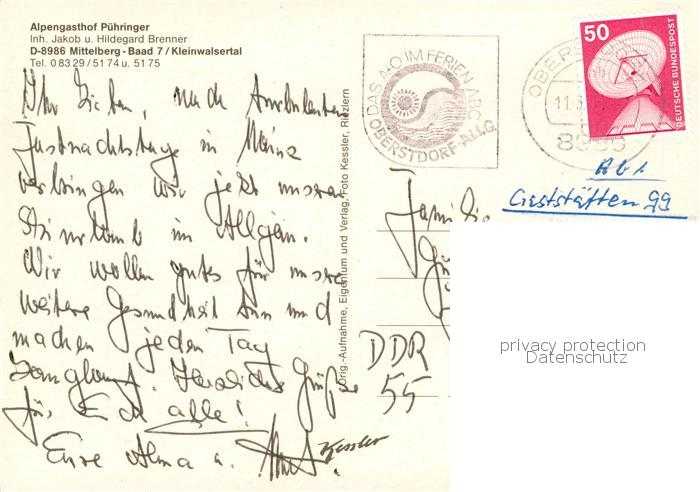 Alpengasthof Pühringer
Inh. Jakob u. Hildegard Brenner
D-8986 Mittelberg - Baad 7 / Kleinwalsertal
Tel. 0 83 29 / 51 74 u. 51 75
Ihr Lieben, nach turbulenten
Fastnachtstage in Mainz
verbringen wir jetzt unseren
Skiurlaub im Allgäu.
Wir wollen gutes für unsere
weitere Gesundheit tun und
machen jeden Tag
Langlauf. Herzliche Grüße
für Euch alle!
Eure Alma u.
Orig.-Aufnahme, Eigentum und Verlag, Foto Kessler, Riezlern
Kessler
DAS A-O IM FERIEN-ABC
OBERSTDORF-ALLG.
50
DEUTSCHE BUNDESPOST
Abt.
Gaststätten 99
Familie
DDR
55
privacy protection
Datenschutz